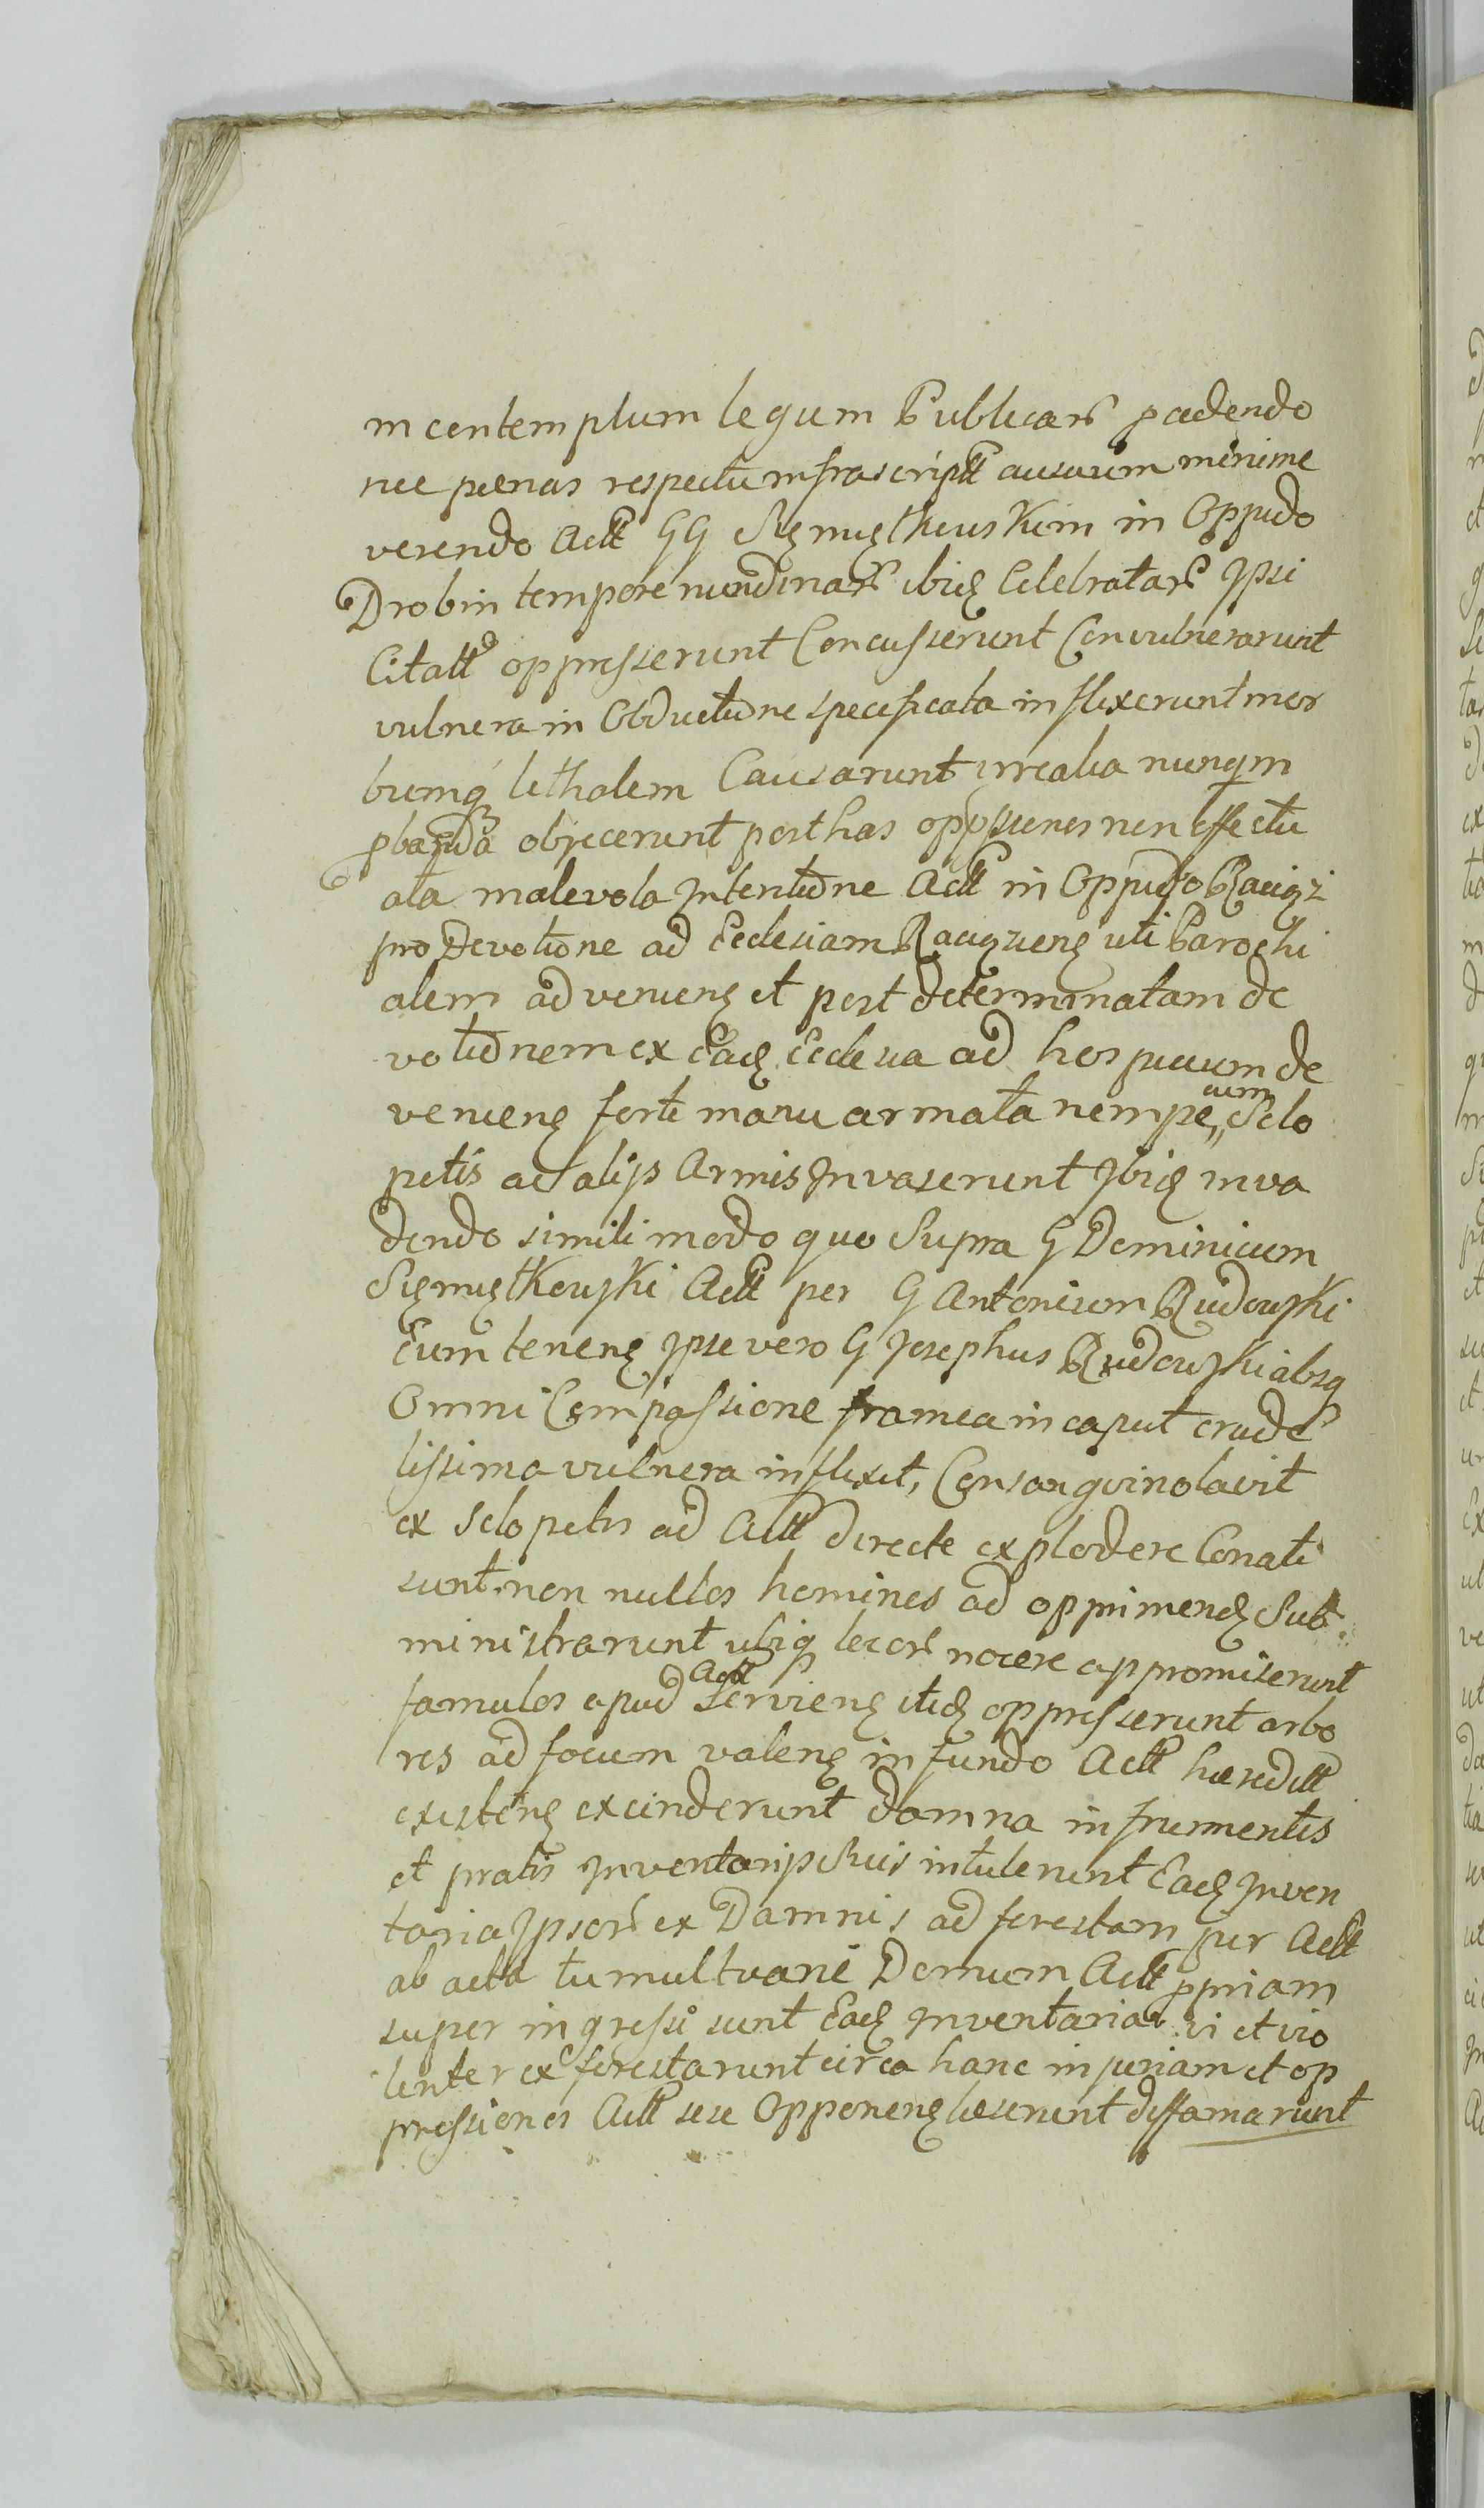 in contemptum legum Publicar͞ pcedendo
nec pœnas respectu infrascriptt ausuum minime
verendo Actt GG Siemiątkowskim in Oppido
Drobin tempore nundinar͞ ibiq Celebratar͞ Ipsi
Citatt oppresserunt Concusserunt Convulnerarunt
vulnera in Obductione specificata inflixerunt mor
bumq lethalem Causarunt irrealia nunqm
pbanda objecerunt post has oppssiones non effectu
ata malevola Intentione Actt in Oppido Raciąż
pro Devotione ad Ecclesiam Raciązieñ uti Parochi
alem advenienę et post determinatam de
votionem ex Eadę Ecclesia ad hospicium de
venienę forti manu armata nempe cum Sclo
petis ac alijs Armis Invaserunt Ibidę inva
dendo simili modo quo Supra G Dominicum
Siemiątkowski Actt per G Antonium Rudowski
Eum tenenę Ipse vero G Josephus Rudowski absq
Omni Compassione framea in caput crude
lissima vulnera inflixit, Consanguinolavit
ex Sclopetis ad Actt directe explodere Conati
sunt non nullos homines ad opprimendę Sub
ministrarunt ubiq locor͞ nocere appromiserunt
famulos apud Actt Servienę itidę oppresserunt arbo
res ad focum valenę in fundo Actt hæreditt
existenę exciderunt damna in frumentis
et pratis Inventarijs Suis intulerunt Eadę Inven
taria Ipsor͞ ex Damnis ad forestam per Actt
ab acta tumultuarie Domum Actt ppriam
super ingressi sunt Eadę Inventaria vi et vio
lenter exforestarunt circa hanc injuriam et op
pressiones Actt sese Opponenę læserunt diffamarunt